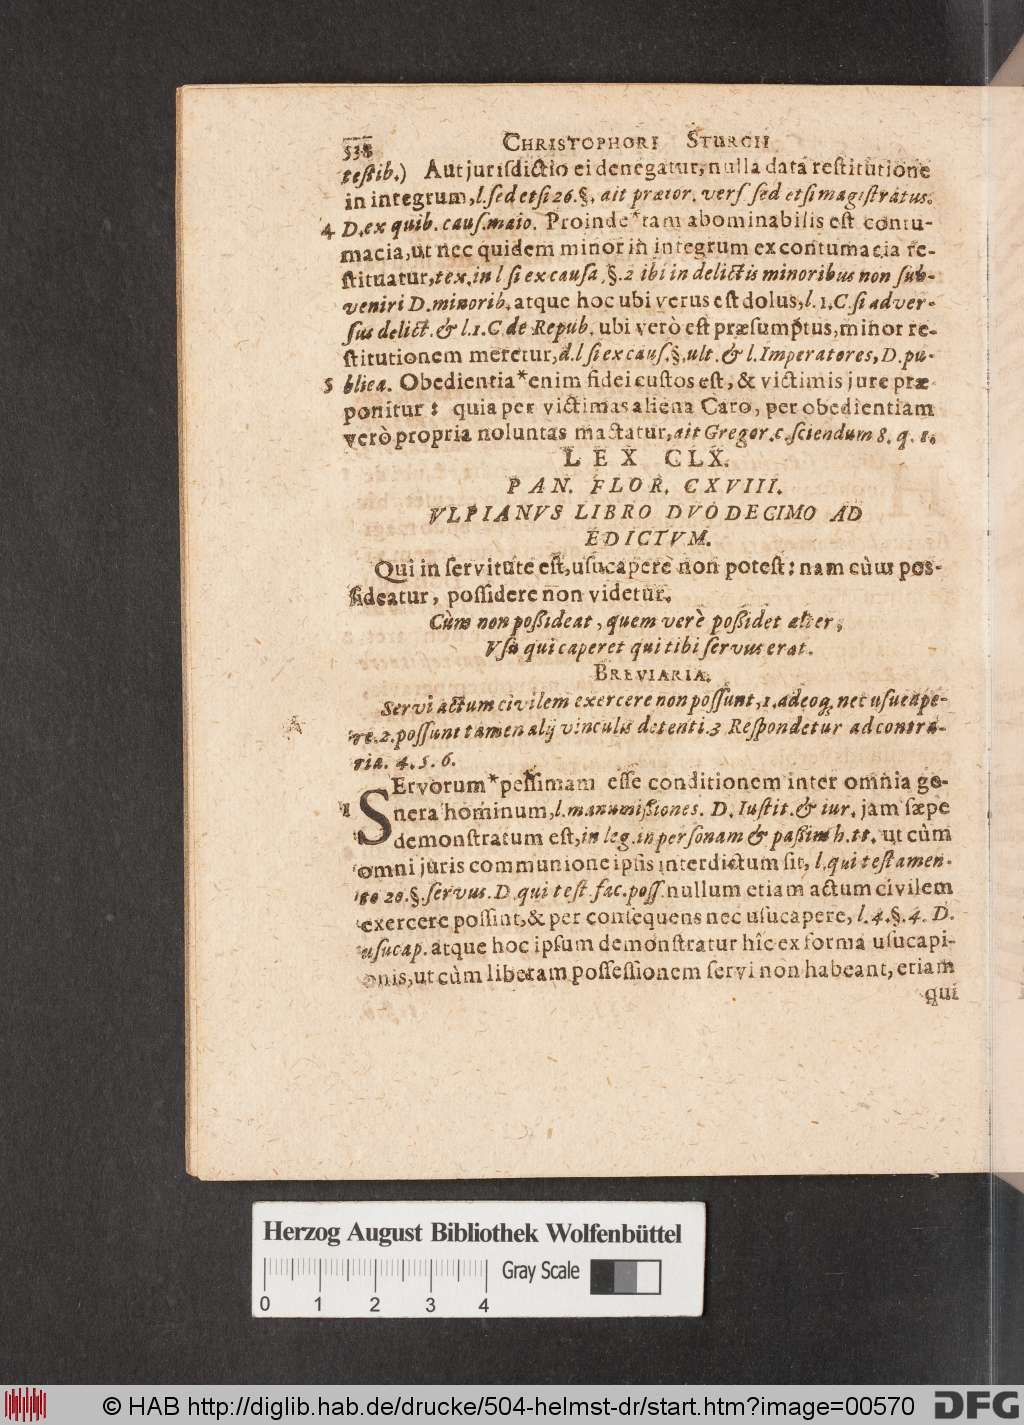 538 CHRISTOPHORI STURCII
testib.) Aut jurisdictio ei denegatur, nulla data restitutione
in integrum, l. sed etsi 26. §. ait prætor. vers sed etsi magistratus.
4 D. ex quib. caus. maio. Proinde * tam abominabilis est contu-
macia, ut nec quidem minor in integrum ex contumacia re-
stituatur, tex. in l si ex causa. §. 2 ibi in delictis minoribus non sub-
veniri D. minorib. atque hoc ubi verus est dolus, l. 1. C. si adver-
sus delict. & l. 1. C. de Repub. ubi verò est præsumptus, minor re-
stitutionem meretur, d. l si ex caus. §. ult. & l. Imperatores, D. pu-
5 blica. Obedientia * enim fidei custos est, & victimis jure præ
ponitur: quia per victimas aliena Caro, per obedientiam
verò propria noluntas mactatur, ait Gregor. c. sciendum 8. q. 1.
LEX CLX.
PAN. FLOR. CXVIII.
VLPIANVS LIBRO DVODECIMO AD
EDICTVM.
Qui in servitute est, usucapere non potest: nam cùm pos-
sideatur, possidere non videtur.
Cùm non possideat, quem verè possidet alter,
Vsu qui caperet qui tibi servus erat.
BREVIARIA.
Servi actum civilem exercere non possunt, 1. adeoq; nec usucape-
re. 2. possunt tamen alij vinculis detenti. 3 Respondetur ad contra-
ria. 4. 5. 6.
SErvorum * pessimam esse conditionem inter omnia ge-
1 nera hominum, l. manumissiones. D. Iustit. & iur. jam sæpe
demonstratum est, in leg. in personam & passim h. tt. ut cùm
omni juris communione ipsis interdictum sit, l. qui testamen-
to 20. §. servus. D. qui test. fac. poss. nullum etiam actum civilem
exercere possint, & per consequens nec usucapere, l. 4. §. 4. D.
usucap. atque hoc ipsum demonstratur hîc ex forma usucapi-
onis, ut cùm liberam possessionem servi non habeant, etiam
qui
Herzog August Bibliothek Wolfenbüttel
Gray Scale
0 1 2 3 4
© HAB http://diglib.hab.de/drucke/504-helmst-dr/start.htm?image=00570
DFG